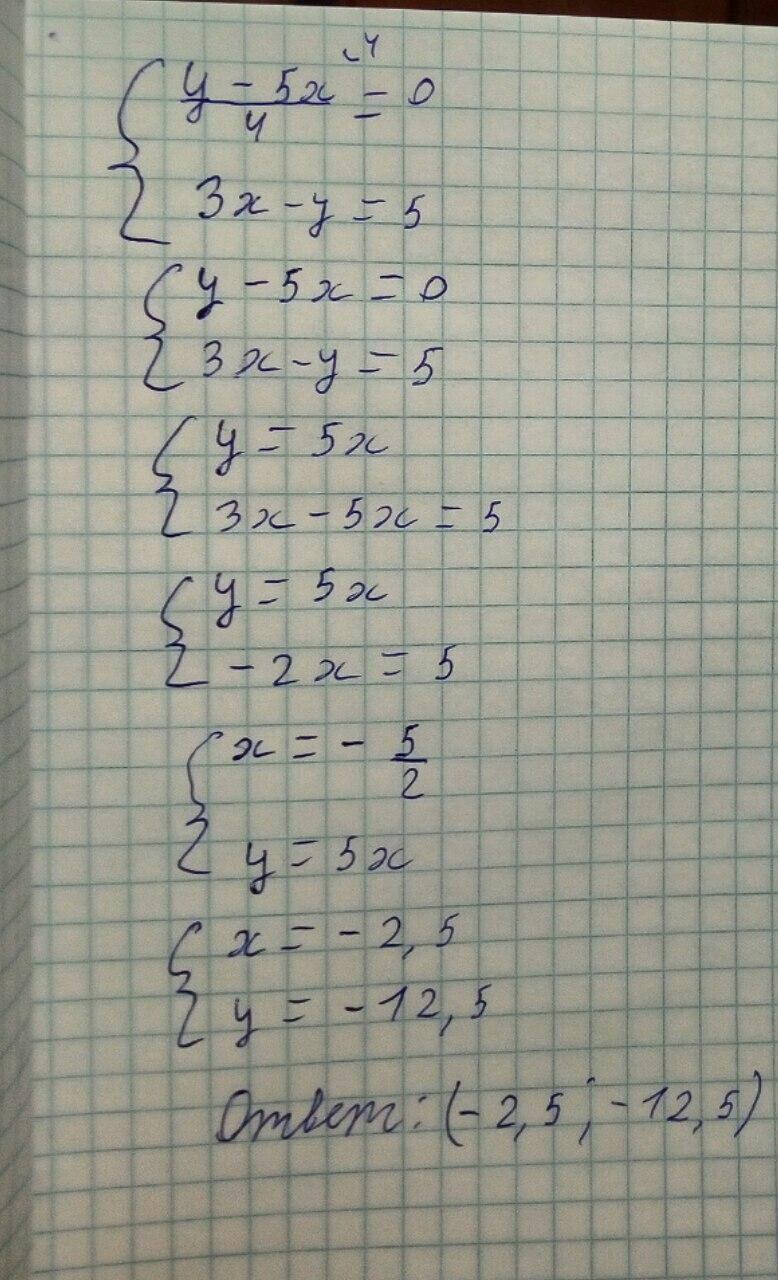 y - 5x = 0
4
3x - y = 5
y - 5x = 0
3x - y = 5
y = 5x
3x - 5x = 5
y = 5x
- 2x = 5
x = - 5/2
y = 5x
x = - 2,5
y = - 12,5
Ответ: (- 2,5 ; - 12,5)